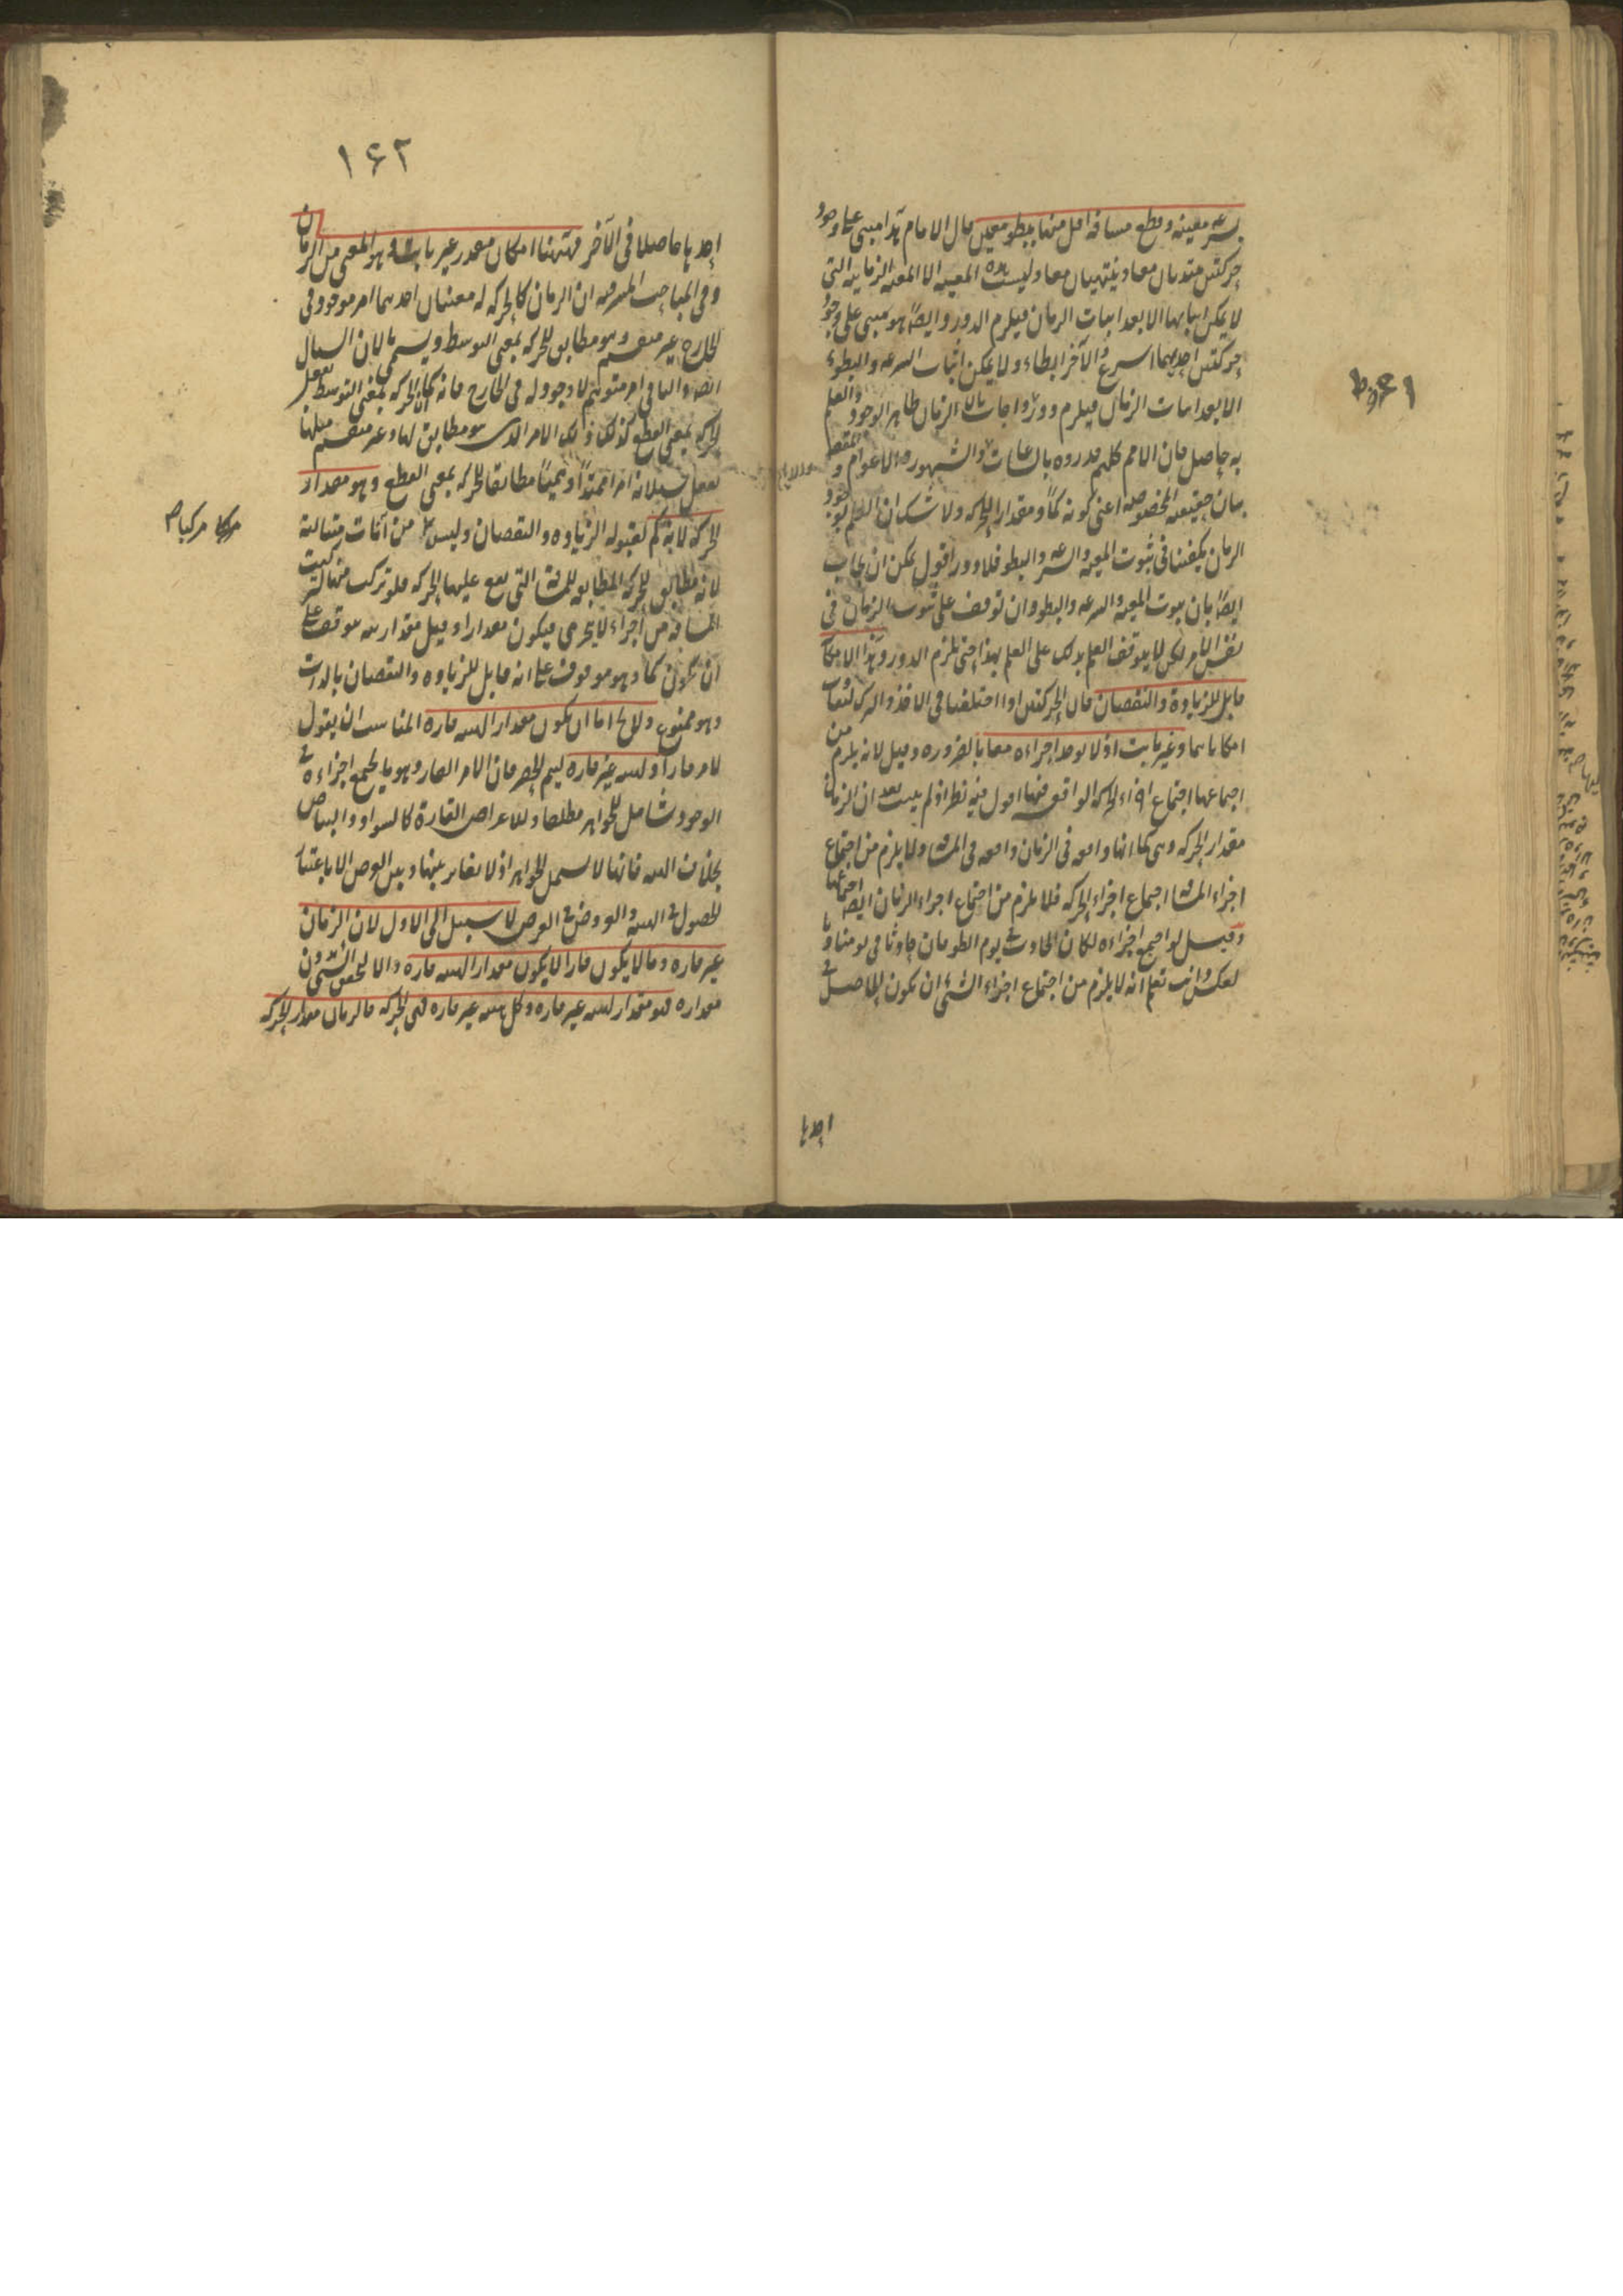 بسرعة معينة وقطع مسافة اقل منها ببطؤ معين قال الامام هذا مبنى على وجود
حركتين تبتديان معا وينتهيان معا وليست هذه المعية الا المعية الزمانية التى
لا يمكن اثباتها الا بعد اثبات الزمان فيلزم الدور وايضا هو مبنى على وجود
حركتين احديهما اسرع والآخر ابطاء ولا يمكن اثبات السرعه والبطوء
الا بعد اثبات الزمان فيلزم دور واجاب بان الزمان ظاهر الوجود والعلم
به حاصل فان الامم كلهم قدروه بالساعات والشهور والاعوام والمقصود
بيان حقيقته المخصوصه اعنى كونه كمًا ومقدار الحركه ولا شك ان العلم بوجود
الزمان يكفينا فى ثبوت المعية والسرعه والبطو فلا دور اقول يمكن ان يجاب
ايضا بان ثبوت المعية والسرعه والبطو وان توقف على ثبوت الزمان فى
نفس الامر لكن لا يتوقف العلم بذلك على العلم بهذا حتى يلزم الدور وهذا الامكان
قابل للزيادة والنقصان فان الحركتين اذا اختلفتا فى الاخذ والترك تفاوت
امكاناهما وغير ثابت اذ لا يوجد اجزاءه معا بالضروره وقيل لانه يلزم من
اجتماعها اجتماع اجزاء الحركه الواقعه فيها اقول فيه نظر اذ لم يثبت بعد ان الزمان
مقدار الحركه وهى كما انها واقعه فى الزمان واقعه فى المسافة ولا يلزم من اجتماع
اجزاء المسافة اجتماع اجزاء الحركه فلا يلزم من اجتماع اجزاء الزمان ايضا اجتماعها
وقيل لو اجتمع اجزاءه لكان الحادث فى يوم الطوفان حادثا فى يومنا وبا
لعكس وانت تعلم انه لا يلزم من اجتماع اجزاء الشئ ان يكون الحاصل فى
احدها
١٦٢
احدها حاصلا فى الآخر فههنا امكان مقدر غير ثابت وهو المعنى من الزمان
وفى المباحث المشرقيه ان الزمان كالحركه له معنيان احدهما امر موجود فى
الخارج غير منقسم وهو مطابق للحركه بمعنى التوسط ويسمى بالان السيال
ايضا والثانى امر متوهم لا وجود له فى الخارج فانه كما ان الحركه بمعنى التوسط تفعل
الحركه بمعنى القطع كذلك ذلك الامر الذى هو مطابق لها وغير منقسم مثلها
يفعل بسيلانه امرا ممتدا وهميًا مطابقا للحركه بمعنى القطع وهو مقدار
الحركه لانه كم لقبوله الزياده والنقصان وليس من آنات متتالية
مركبا
لانه مطابق للحركة المطابقه للمسافة التى يقع عليها الحركه فلو تركب منها لتركبت
المسافة من اجزاء لا يتجزى فيكون مقدارا وقيل مقداريته موقوفة على
ان يكون كما وهو موقوف على انه قابل للزياده والنقصان بالذات
وهو ممنوع ولا يخ اما ان يكون مقدار الهيئة قاره المناسب ان يقول
لامر قار او لهيئة غير قاره ليتم الحصر فان الامر القار وهو ما يجتمع اجزاءه فى
الوجود شامل للجواهر مطلقا وللاعراض القارة كالسواد والبياض
بخلاف الهيئة فانها لا تشمل الجواهر اذ لا تغاير بينها وبين العرض الا باعتبار
الحصول فى الهيئة والعروض فى العرض لا سبيل الى الاول لان الزمان
غير قاره وما لا يكون قارا لا يكون مقدار الهيئة قاره والا لتحقق الشئ بدون
مقداره فهو مقدار لهيئة غير قاره وكل هيئة غير قاره فهى الحركه فالزمان مقدار الحركه